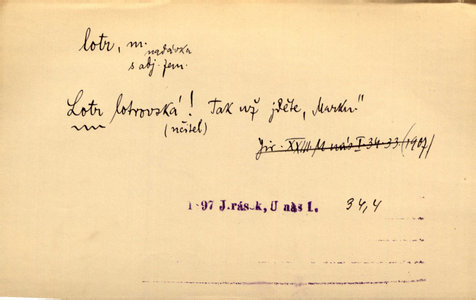 lotr, m.
nadávka
s adj. fem.
Lotr lotrovská! Tak už jděte, „Marku“
(učitel)
Jir. XXIII. U nás I. 34-33 (1907)
1897 Jirásek, U nás I. 34,4